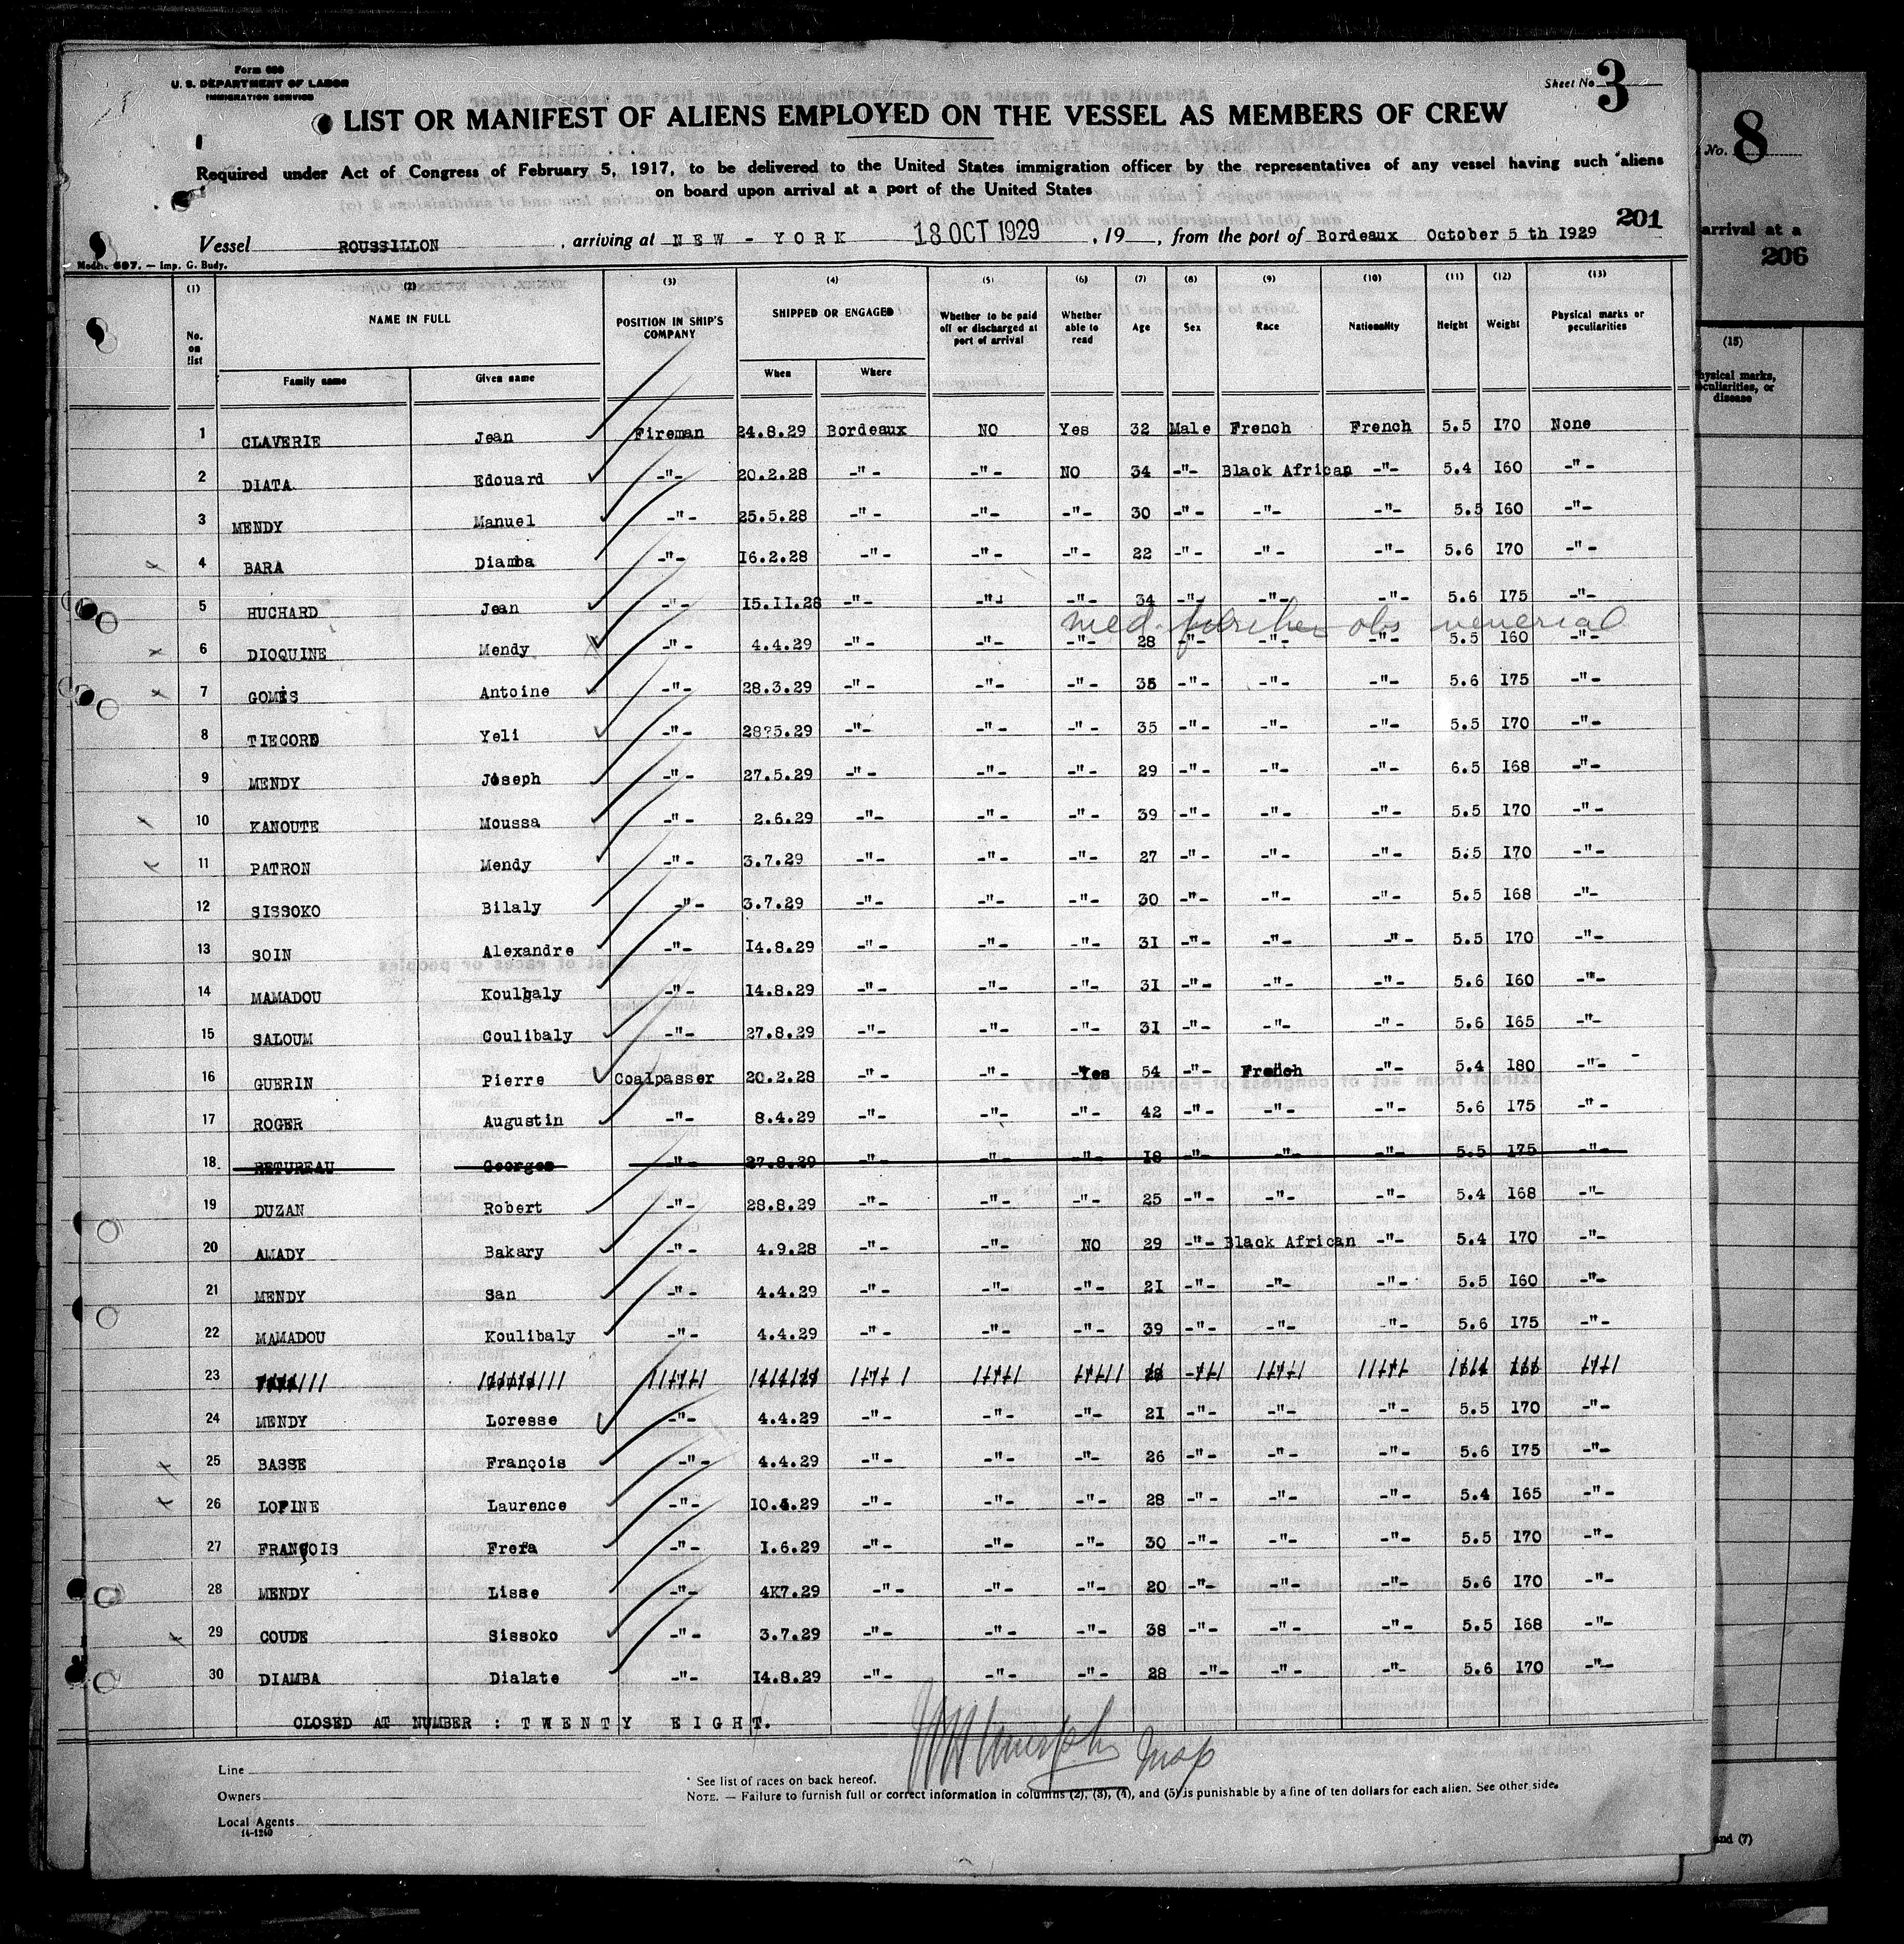 Form 680
U. S. DEPARTMENT OF LABOR
IMMIGRATION SERVICE
Sheet No. 3
LIST OR MANIFEST OF ALIENS EMPLOYED ON THE VESSEL AS MEMBERS OF CREW
Required under Act of Congress of February 5, 1917, to be delivered to the United States immigration officer by the representatives of any vessel having such aliens
on board upon arrival at a port of the United States
201
Vessel ROUSSILLON , arriving at NEW - YORK 18 OCT 1929 , 19 , from the port of Bordeaux October 5 th 1929
Imp. G. Budy.
(1) (2) (3) (4) (5) (6) (7) (8) (9) (10) (11) (12) (13)
No. on list NAME IN FULL POSITION IN SHIP'S COMPANY SHIPPED OR ENGAGED Whether to be paid off or discharged at port of arrival Whether able to read Age Sex Race Nationality Height Weight Physical marks or peculiarities
Family name Given name When Where
1 CLAVERIE Jean Fireman 24.8.29 Bordeaux NO Yes 32 Male French French 5.5 I70 None
2 DIATA Edouard -"- 20.2.28 -"- -"- NO 34 -"- Black African -"- 5.4 I60 -"-
3 MENDY Manuel -"- 25.5.28 -"- -"- -"- 30 -"- -"- -"- 5.5 I60 -"-
4 BARA Diamba -"- I6.2.28 -"- -"- -"- 22 -"- -"- -"- 5.6 I70 -"-
5 HUCHARD Jean -"- I5.II.28 -"- -"- -"- 34 -"- -"- -"- 5.6 I75 -"-
med. further obs venereal
6 DIOQUINE Mendy -"- 4.4.29 -"- -"- -"- 28 -"- -"- -"- 5.5 I60 -"-
7 GOMIS Antoine -"- 28.3.29 -"- -"- -"- 35 -"- -"- -"- 5.6 I75 -"-
8 TIECORD Yeli -"- 28?5.29 -"- -"- -"- 35 -"- -"- -"- 5.5 I70 -"-
9 MENDY Joseph -"- 27.5.29 -"- -"- -"- 29 -"- -"- -"- 6.5 I68 -"-
10 KANOUTE Moussa -"- 2.6.29 -"- -"- -"- 39 -"- -"- -"- 5.5 I70 -"-
11 PATRON Mendy -"- 3.7.29 -"- -"- -"- 27 -"- -"- -"- 5.5 I70 -"-
12 SISSOKO Bilaly -"- 3.7.29 -"- -"- -"- 30 -"- -"- -"- 5.5 I68 -"-
13 SOIN Alexandre -"- I4.8.29 -"- -"- -"- 3I -"- -"- -"- 5.5 I70 -"-
14 MAMADOU Koulbaly -"- I4.8.29 -"- -"- -"- 3I -"- -"- -"- 5.6 I60 -"-
15 SALOUM Coulibaly -"- 27.8.29 -"- -"- -"- 3I -"- -"- -"- 5.6 I65 -"-
16 GUERIN Pierre Coalpasser 20.2.28 -"- -"- Yes 54 -"- French -"- 5.4 I80 -"-
17 ROGER Augustin -"- 8.4.29 -"- -"- -"- 42 -"- -"- -"- 5.6 I75 -"-
18 RETUREAU Georges -"- 27.8.29 -"- -"- -"- I8 -"- -"- -"- 5.5 I75 -"-
19 DUZAN Robert -"- 28.8.29 -"- -"- -"- 25 -"- -"- -"- 5.4 I68 -"-
20 AMADY Bakary -"- 4.9.28 -"- -"- NO 29 -"- Black African -"- 5.4 I70 -"-
21 MENDY San -"- 4.4.29 -"- -"- -"- 2I -"- -"- -"- 5.5 I60 -"-
22 MAMADOU Koulibaly -"- 4.4.29 -"- -"- -"- 39 -"- -"- -"- 5.6 I75 -"-
23
24 MENDY Loresse -"- 4.4.29 -"- -"- -"- 2I -"- -"- -"- 5.5 I70 -"-
25 BASSE François -"- 4.4.29 -"- -"- -"- 26 -"- -"- -"- 5.6 I75 -"-
26 LOPINE Laurence -"- I0.4.29 -"- -"- -"- 28 -"- -"- -"- 5.4 I65 -"-
27 FRANÇOIS Frefa -"- I.6.29 -"- -"- -"- 30 -"- -"- -"- 5.5 I70 -"-
28 MENDY Lisse -"- 4K7.29 -"- -"- -"- 20 -"- -"- -"- 5.6 I70 -"-
29 COUDE Sissoko -"- 3.7.29 -"- -"- -"- 38 -"- -"- -"- 5.5 I68 -"-
30 DIAMBA Dialate -"- I4.8.29 -"- -"- -"- 28 -"- -"- -"- 5.6 I70 -"-
CLOSED AT NUMBER : TWENTY EIGHT.
Insp
Line
Owners
Local Agents
14-1240
* See list of races on back hereof.
NOTE. — Failure to furnish full or correct information in columns (2), (3), (4), and (5) is punishable by a fine of ten dollars for each alien. See other side.
No. 8
arrival at a
206
(15)
physical marks,
peculiarities, or
disease
and (7)